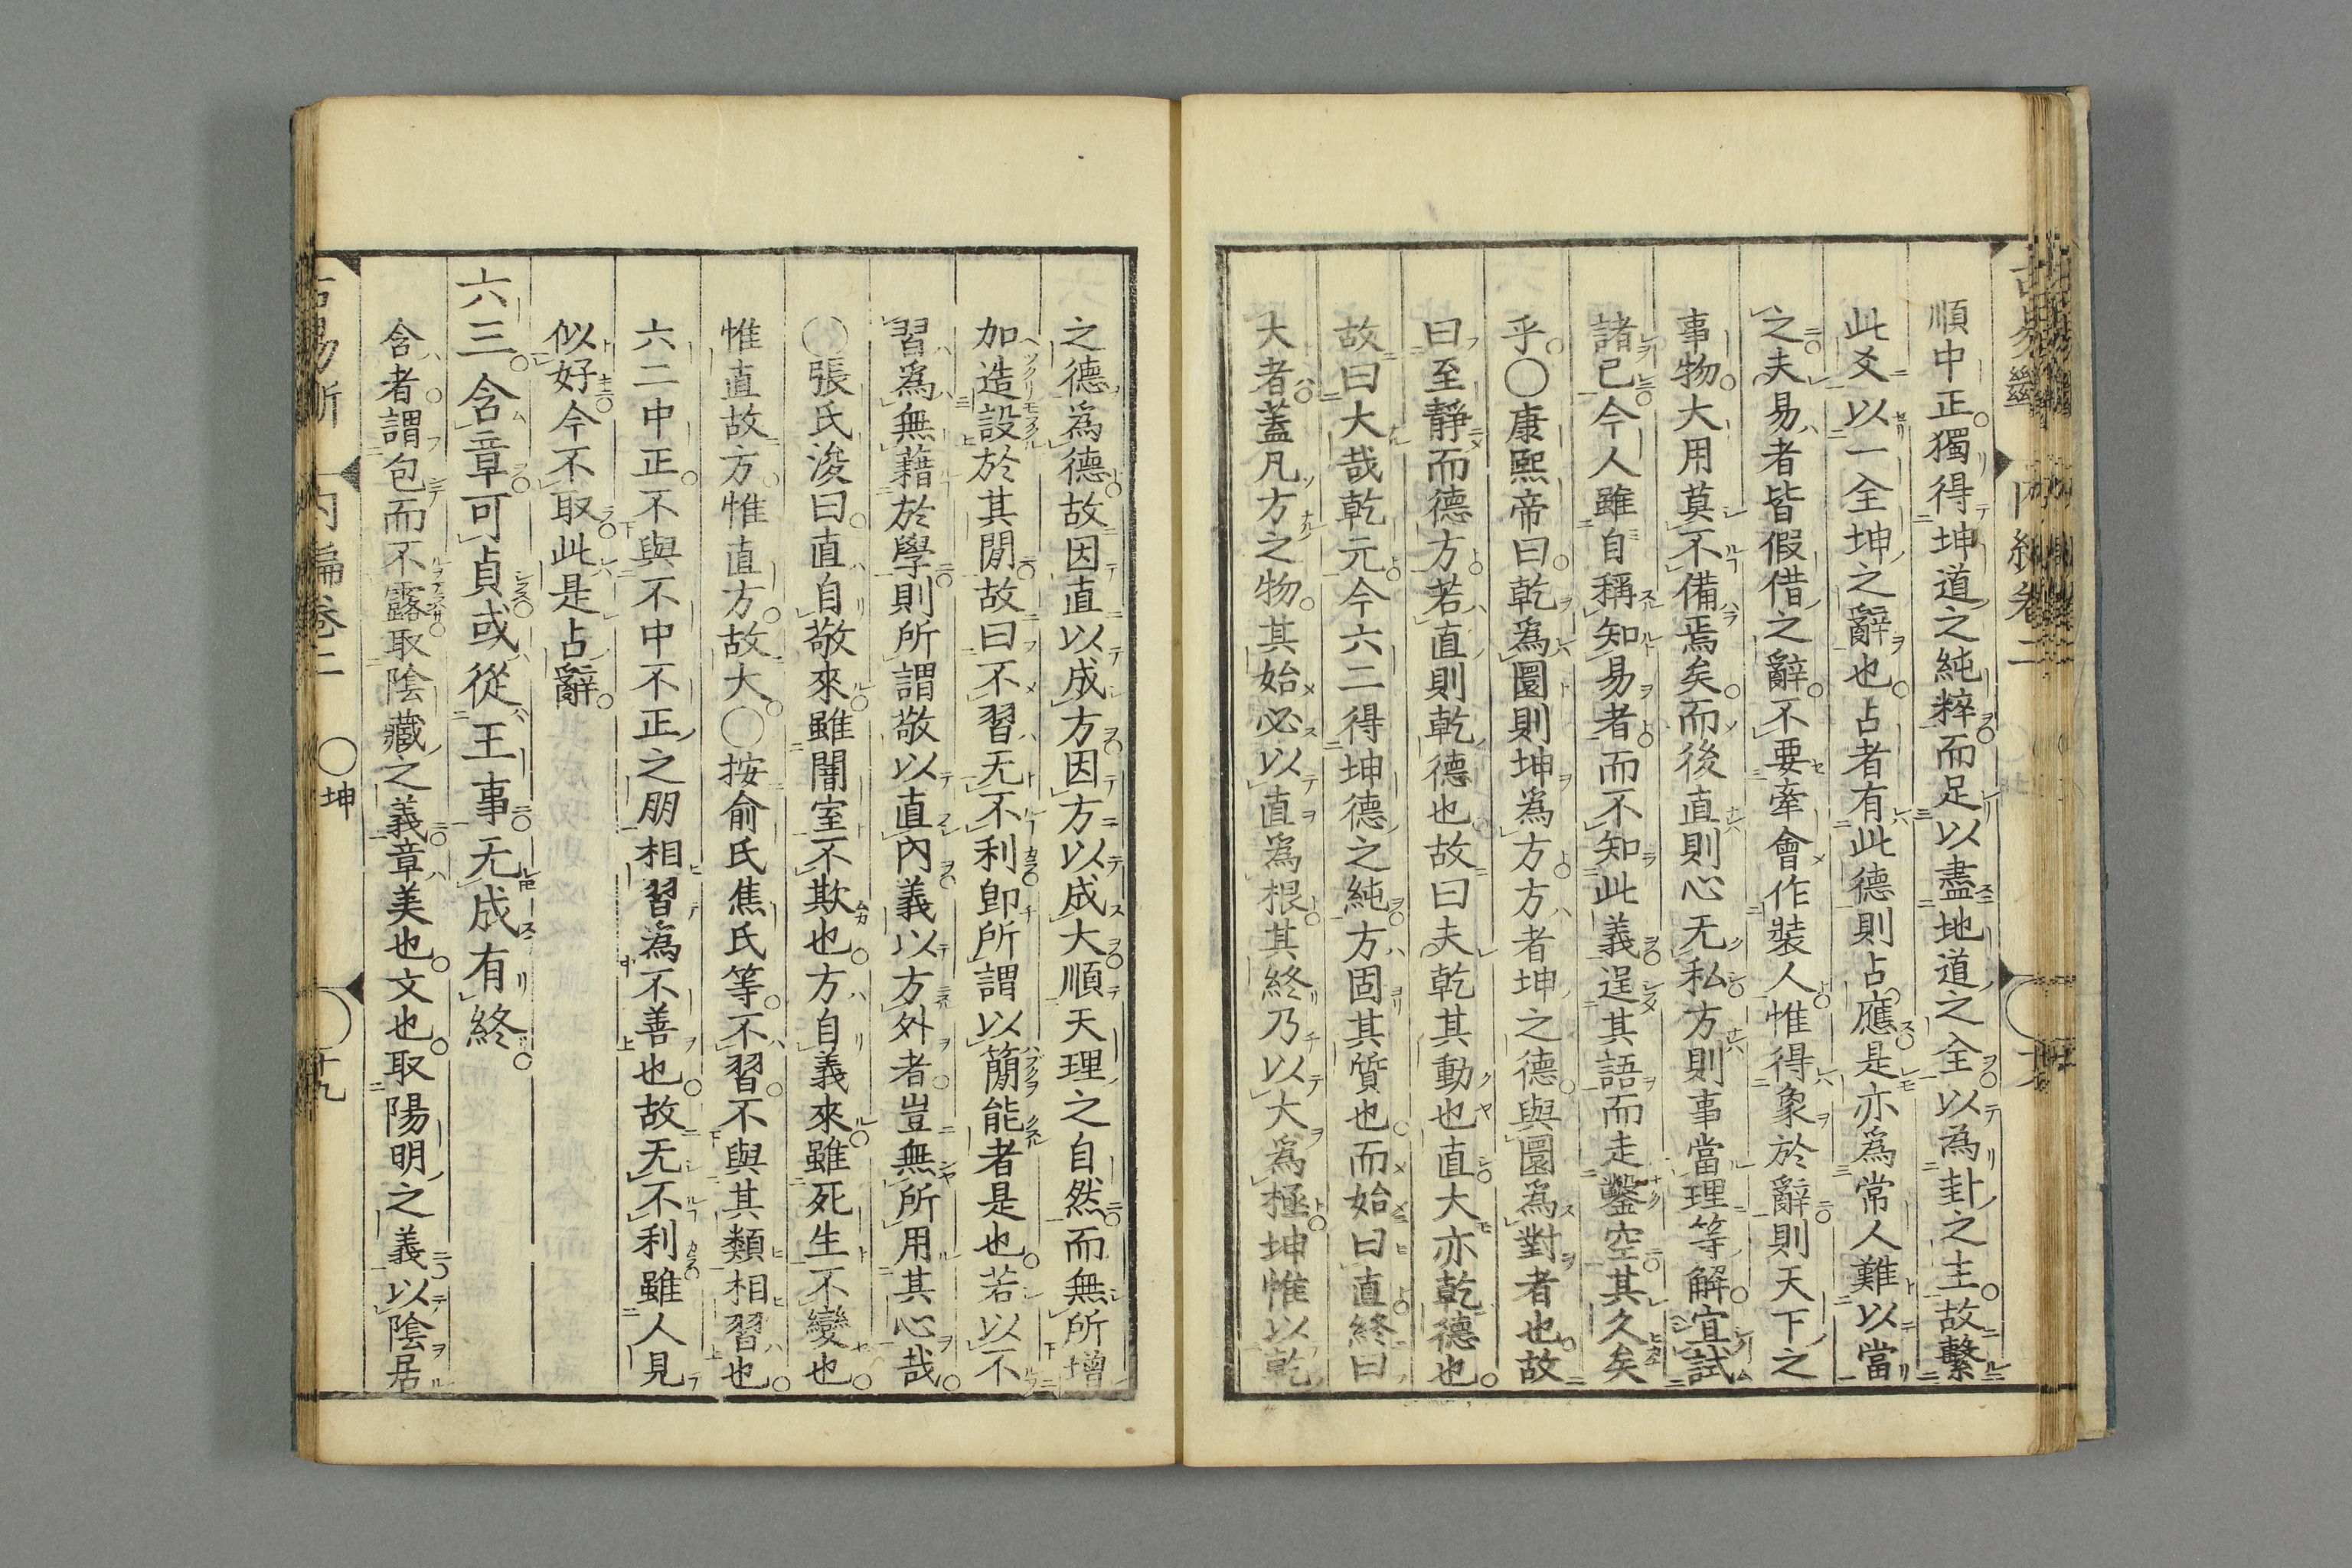 順中正獨得坤道之純粹而足以盡地道之全以為卦之主故繫
此爻以一全坤之辭也占者有此德則占應是亦為常人難以當
之夫易者皆假借之辭不要牽會作裝人惟得象於辭則天下之
事物大用莫不備焉矣而後直則心无私方則事當理等解宜試
諸已今人雖自稱知易者而不知此義逞其語而走鑿空其久矣
乎〇康熙帝曰乾為圜則坤為方方者坤之德與圜為對者也故
曰至靜而德方若直則乾德也故曰夫乾其動也直大亦乾德也
故曰大哉乾元今六二得坤德之純方固其質也而始曰直終曰
大者蓋凡方之物其始必以直為根其終乃以大為極坤惟以乾
之德為德故因直以成方因方以成大順天理之自然而無所增
加造設於其閒故曰不習无不利卽所謂以簡能者是也若以不
習為無藉於學則所謂敬以直內義以方外者豈無所用其心哉
〇張氏浚曰直自敬來雖闇室不欺也方自義來雖死生不變也
惟直故方惟直方故大〇按俞氏焦氏等不習不與其類相習也
六二中正不與不中不正之朋相習為不善也故无不利雖人見
似好今不取此是占辭
六三含章可貞或從王事无成有終
含者謂包而不露取陰藏之義章美也文也取陽明之義以陰居
內編卷二 〇坤 十九